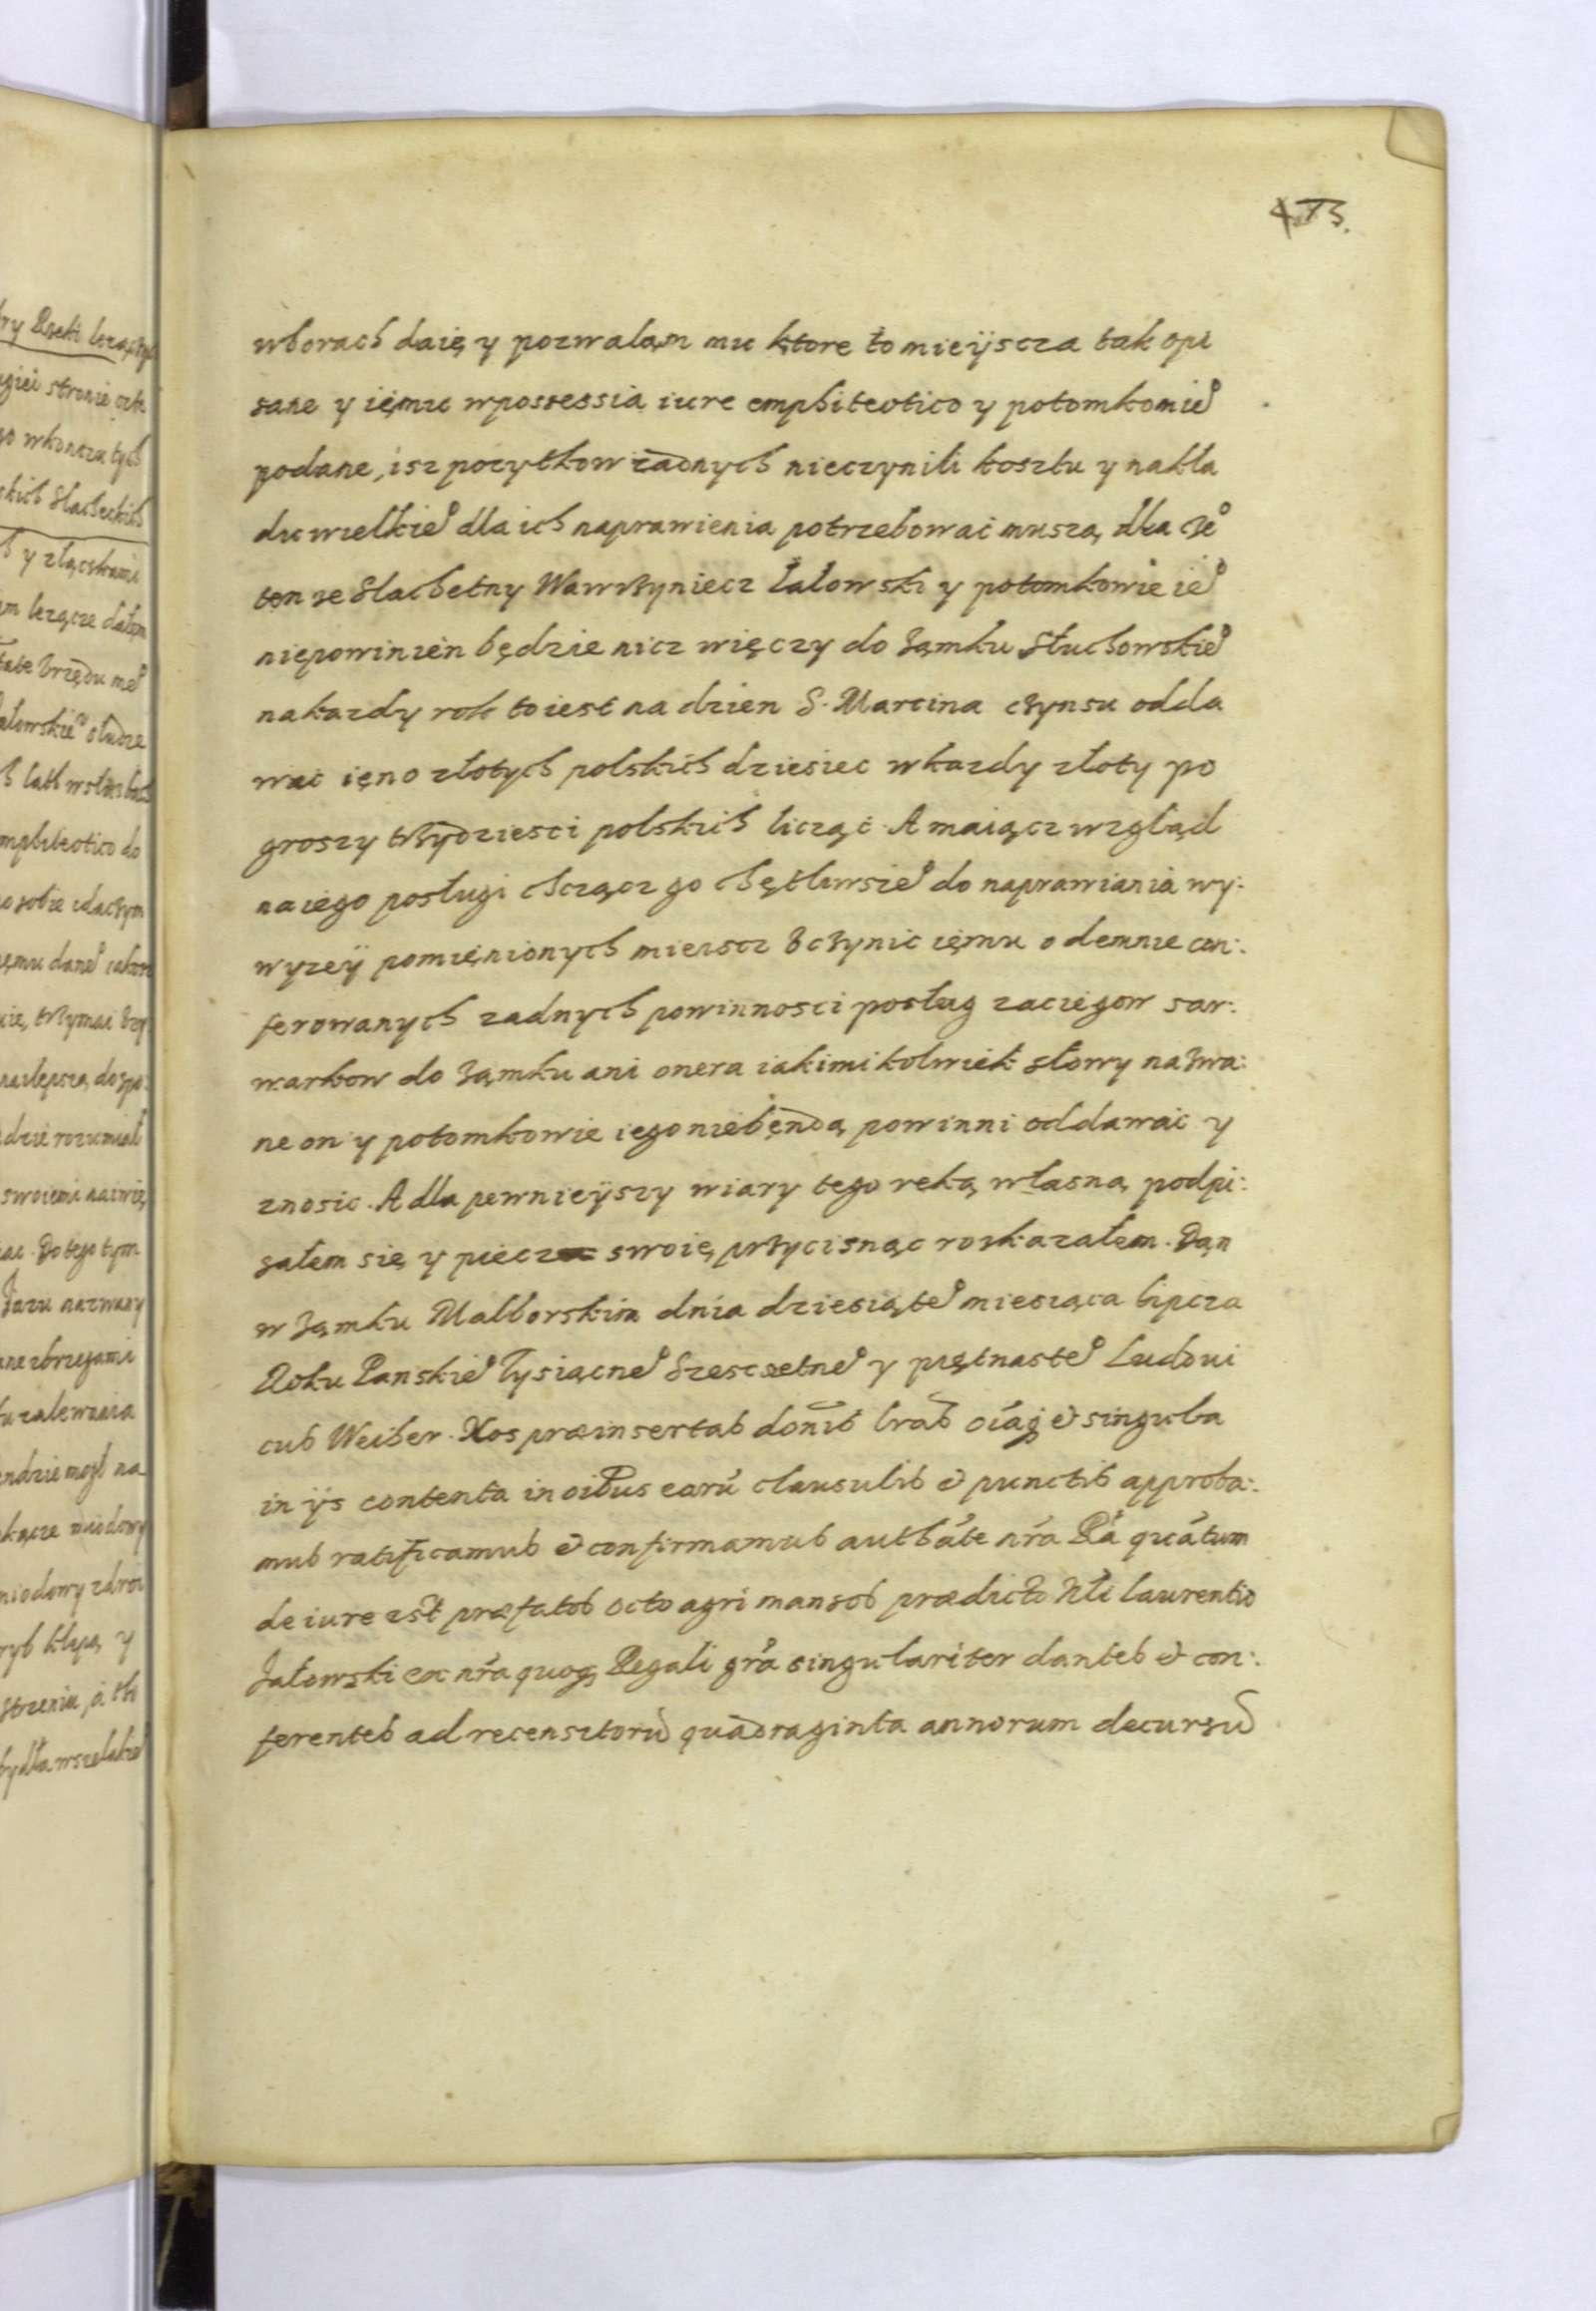 473.
wborach daię y pozwaląm mu ktore to mieÿscza tak opi
sane y ięmu wpossessią iure emphiteotico y potomkom ieº
podane, isz pozytkow zadnych nieczynili kosztu y nakła
du wielkieº dla ich naprawienia potrzebowac muszą, dla cze°
tęn ze Slachetny Wawrzyniecz Załowski y potomkowie ie°
niępowinien będzie nicz więczy do Zamku Słuchowskie°
nakazdy rok toiest na dzien S. Marcina czynsu odda
wac ięno złotych polskich dziesiec wkazdy złoty po
groszy trzydziesci polskich licząc. A maiącz wzgląd
naiego posługi chcącz go chętliwszie° do naprawiania wy:
wyzeÿ pomięnionych mieiscz Vczynic ięmu odemnie con:
ferowanych zadnych powinnosci posług zaciegow sar:
warkow do Zamku ani onera iakimikolwiek słowy nazwa:
ne on y potomkowie iego niebęndą powinni oddawac y
znosic. A dla pewnieÿszy wiary tego reką własną podpi:
sałem się y piecz swoię przycisnąc roskazałem. Dąn
w Zamku Malborskim dnia dziesiąte° miesiąca lipcza
Roku Panskie° Tysiącne° Szescsetne° y piętnaste° Ludovi
cus Weiher. Nos præinsertas don̄is lrās oīaq; & singula
in ijs contenta in oibus earū clausulis & punctis approba:.
mus ratificamus & confirmamus auth́áte nr̃a Rá quátum
de iure est præfatos octo agri mansos prædicto Nłi Laurentio
Załowski ex nr̃a quoq; Regali gr̃a singulariter dantes & con:.
ferentes ad recensztorū quadraginta annorum decursū